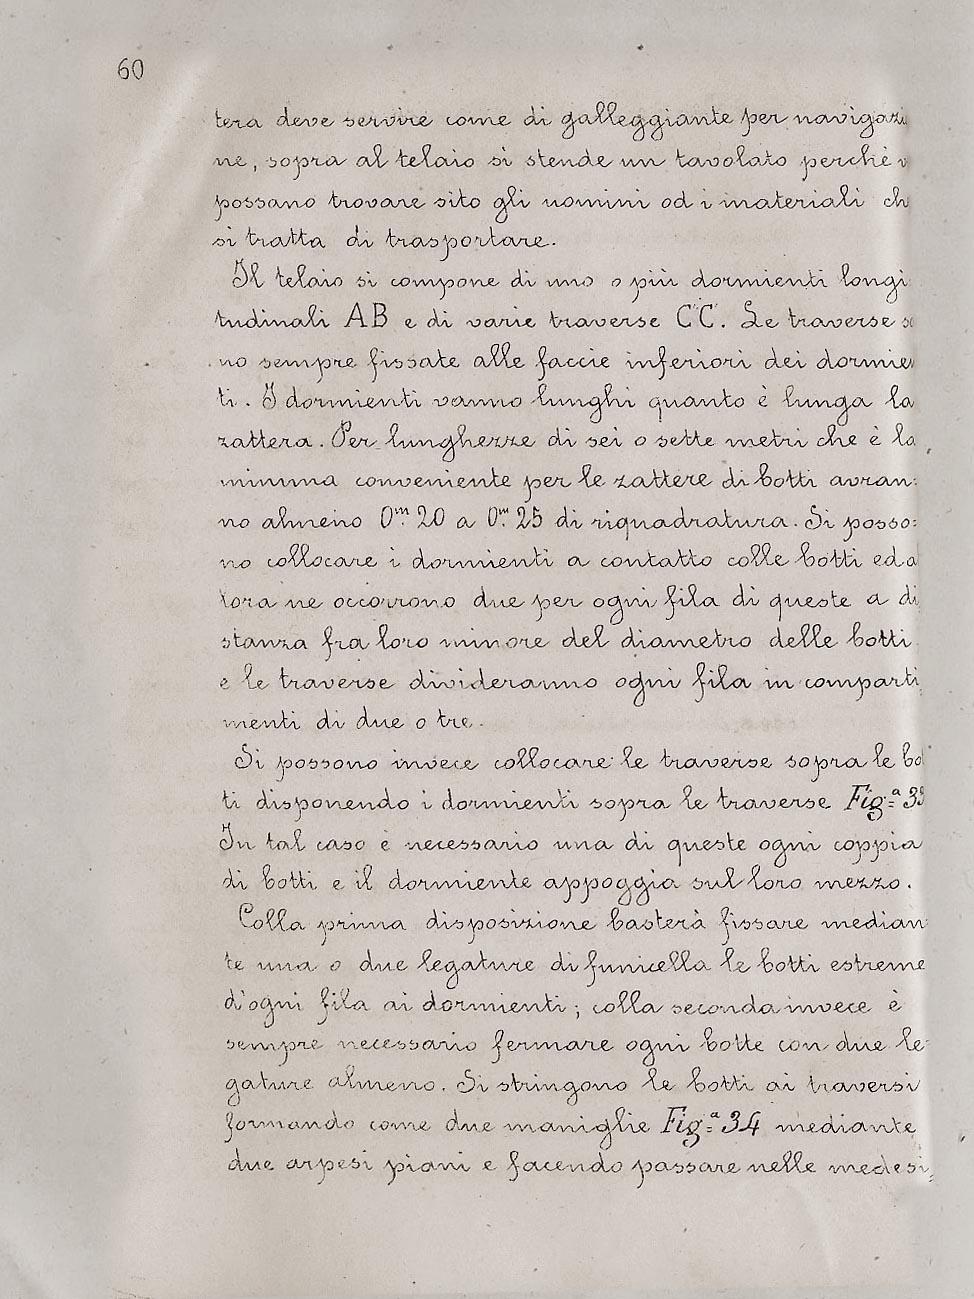 60
tera deve servire come di galleggiante per navigazi
ne, sopra al telaio si stende un tavolato perchè v
possano trovare sito gli uomini od i materiali ch
si tratta di trasportare.
Il telaio si compone di uno o più dormienti longi
tudinali AB e di varie traverse CC. Le traverse so
no sempre fissate alle faccie inferiori dei dormien
ti. I dormienti vanno lunghi quanto è lunga la
zattera. Per lunghezze di sei o sette metri che è la
minima conveniente per le zattere di botti avran=
no almeno 0m. 20 a 0m. 25 di riquadratura. Si posso=
no collocare i dormienti a contatto colle botti ed a
lora ne occorrono due per ogni fila di queste a di
stanza fra loro minore del diametro delle botti
e le traverse divideranno ogni fila in comparti
menti di due o tre.
Si possono invece collocare le traverse sopra le bo
ti disponendo i dormienti sopra le traverse Fig.a 33
In tal caso è necessario una di queste ogni coppia
di botti e il dormiente appoggia sul loro mezzo.
Colla prima disposizione basterà fissare median
te una o due legature di funicella le botti estreme
d'ogni fila ai dormienti; colla seconda invece è
sempre necessario fermare ogni botte con due le=
gature almeno. Si stringono le botti ai traversi
formando come due maniglie Fig.a 34 mediante
due arpesi piani e facendo passare nelle medesi=